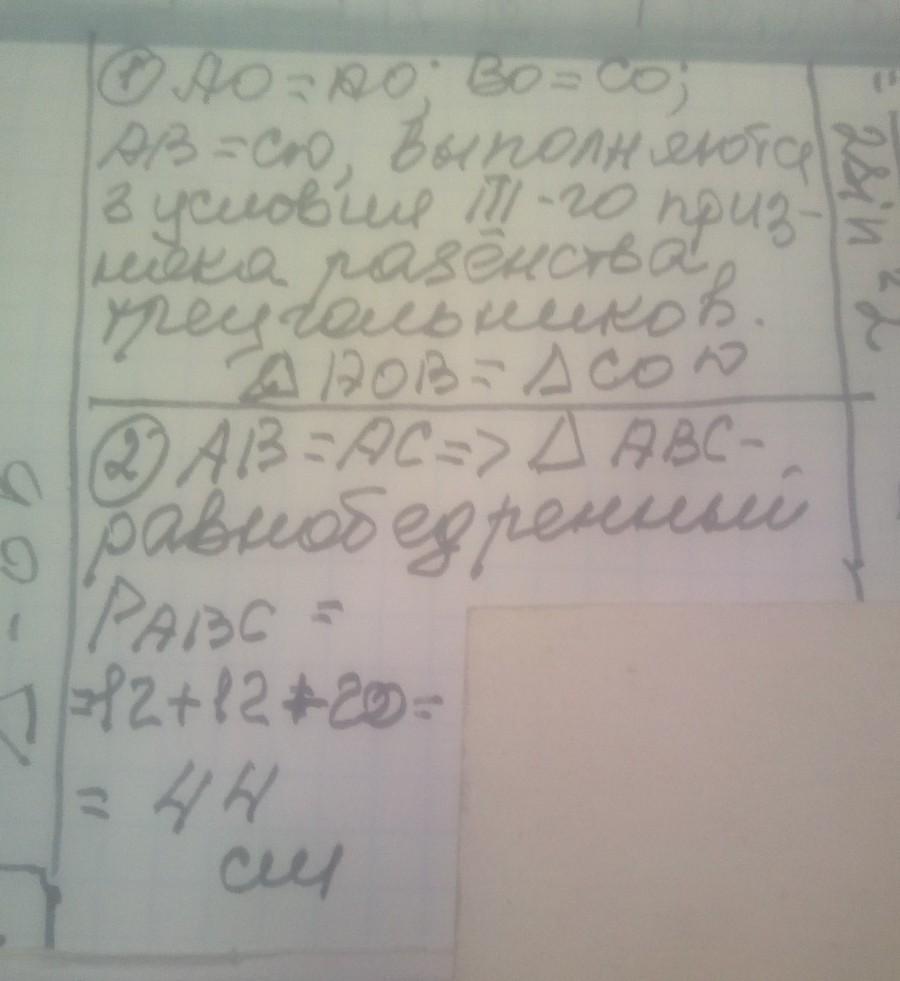 ① AO = DO; BO = CO;
AB = CD, Выполняются
3 условия III-го приз-
нака равенства
треугольников.
△ AOB = △ COD
② AB = AC => △ ABC -
равнобедренный
P ABC =
= 12 + 12 + 20 =
= 44
см